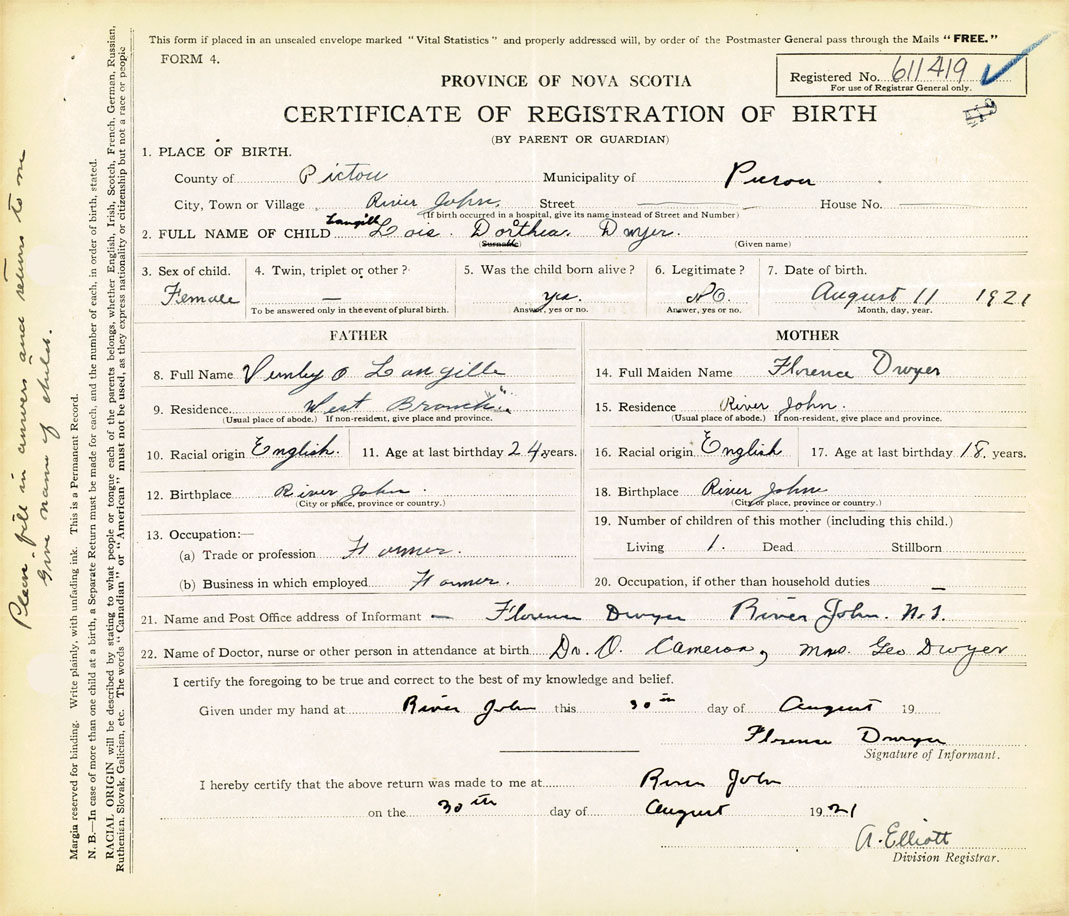 This form if placed in an unsealed envelope marked "Vital Statistics" and properly addressed will, by order of the Postmaster General pass through the Mails "FREE."
FORM 4.
Registered No. 611419
For use of Registrar General only.
PROVINCE OF NOVA SCOTIA
CERTIFICATE OF REGISTRATION OF BIRTH
(BY PARENT OR GUARDIAN)
1. PLACE OF BIRTH.
County of Pictou Municipality of Pictou
City, Town or Village River John. Street House No.
(If birth occurred in a hospital, give its name instead of Street and Number)
Langille
2. FULL NAME OF CHILD Lois. Dorthea. Dwyer.
(Surname) (Given name)
3. Sex of child. 4. Twin, triplet or other? 5. Was the child born alive? 6. Legitimate? 7. Date of birth.
Female — yes. NO. August 11 1921
To be answered only in the event of plural birth. Answer, yes or no. Answer, yes or no. Month, day, year.
FATHER MOTHER
8. Full Name O Langille 14. Full Maiden Name Florence Dwyer
9. Residence West Branch 15. Residence River John.
(Usual place of abode.) If non-resident, give place and province. (Usual place of abode.) If non-resident, give place and province.
10. Racial origin English. 11. Age at last birthday 24 years. 16. Racial origin English 17. Age at last birthday 18. years.
12. Birthplace River John. 18. Birthplace River John
(City or place, province or country.) (City or place, province or country.)
13. Occupation:— 19. Number of children of this mother (including this child.)
(a) Trade or profession Farmer. Living 1. Dead Stillborn
(b) Business in which employed Farmer. 20. Occupation, if other than household duties —
21. Name and Post Office address of Informant — Florence Dwyer River John. N.S.
22. Name of Doctor, nurse or other person in attendance at birth Dr. O. Cameron, Mrs. Geo Dwyer
I certify the foregoing to be true and correct to the best of my knowledge and belief.
Given under my hand at River John this 30th day of August 19
Florence Dwyer
Signature of Informant.
I hereby certify that the above return was made to me at River John
on the 30th day of August 1921
A. Elliott
Division Registrar.
Please fill in answers and return to me
Give name of child.
Margin reserved for binding. Write plainly, with unfading ink. This is a Permanent Record.
N. B.—In case of more than one child at a birth, a Separate Return must be made for each, and the number of each, in order of birth, stated.
RACIAL ORIGIN will be described by stating to what people or tongue each of the parents belongs, whether English, Irish, Scotch, French, German, Russian,
Ruthenian, Slovak, Galician, etc. The words "Canadian" or "American" must not be used, as they express nationality or citizenship but not a race or people